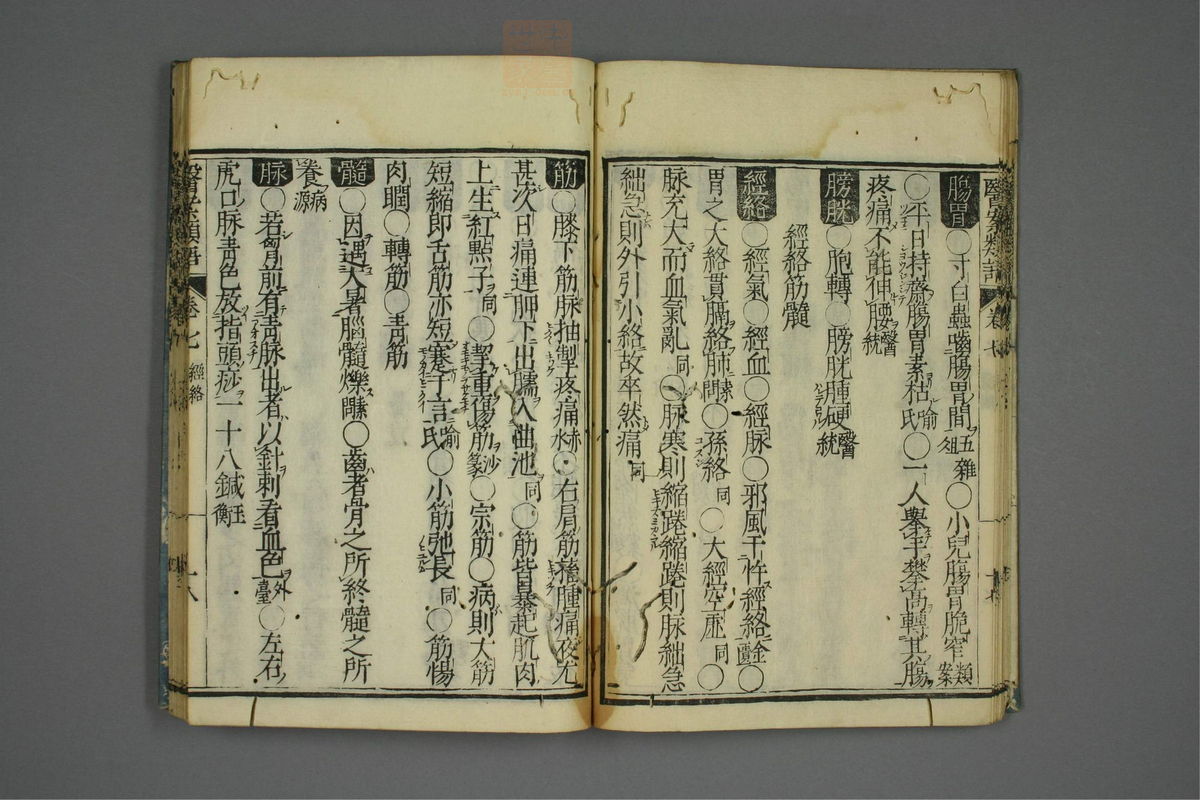 醫案類語 卷七
腸胃〇寸白蟲嚙腸胃間五雜俎〇小兒腸胃脆窄類案
〇平日持齋腸胃素枯喻氏〇一人舉手攀高轉其腸
疼痛不能伸腰醫統
膀胱〇胞轉〇膀胱腫硬醫統
經絡筋髓
經絡〇經氣〇經血〇經脉〇邪風干忤經絡金匱〇
胃之大絡貫膈絡肺素問〇孫絡同〇大經空虛同〇
脉充大而血氣亂同〇脉寒則縮踡縮踡則脉絀急
絀急則外引小絡故卒然痛同
筋〇膝下筋脉抽掣疼痛赤水〇右肩筋癰腫痛夜尤
甚次日痛連胛下出臑入曲池同〇筋皆暴起肌肉
上生紅㸃子同〇挈重傷筋沙篆〇宗筋〇病則大筋
短縮即舌筋亦短蹇于言喻氏〇小筋弛長同〇筋惕
肉瞤〇轉筋〇青筋
髓〇因遇大暑腦髓爍素問〇齒者骨之所終髓之所
養病源
脉〇若胷前有青脉出者以針刺看血色外臺〇左右
虎口脉青色放指頭痧一十八鍼玉衡
醫案類語 卷七 經絡 十八